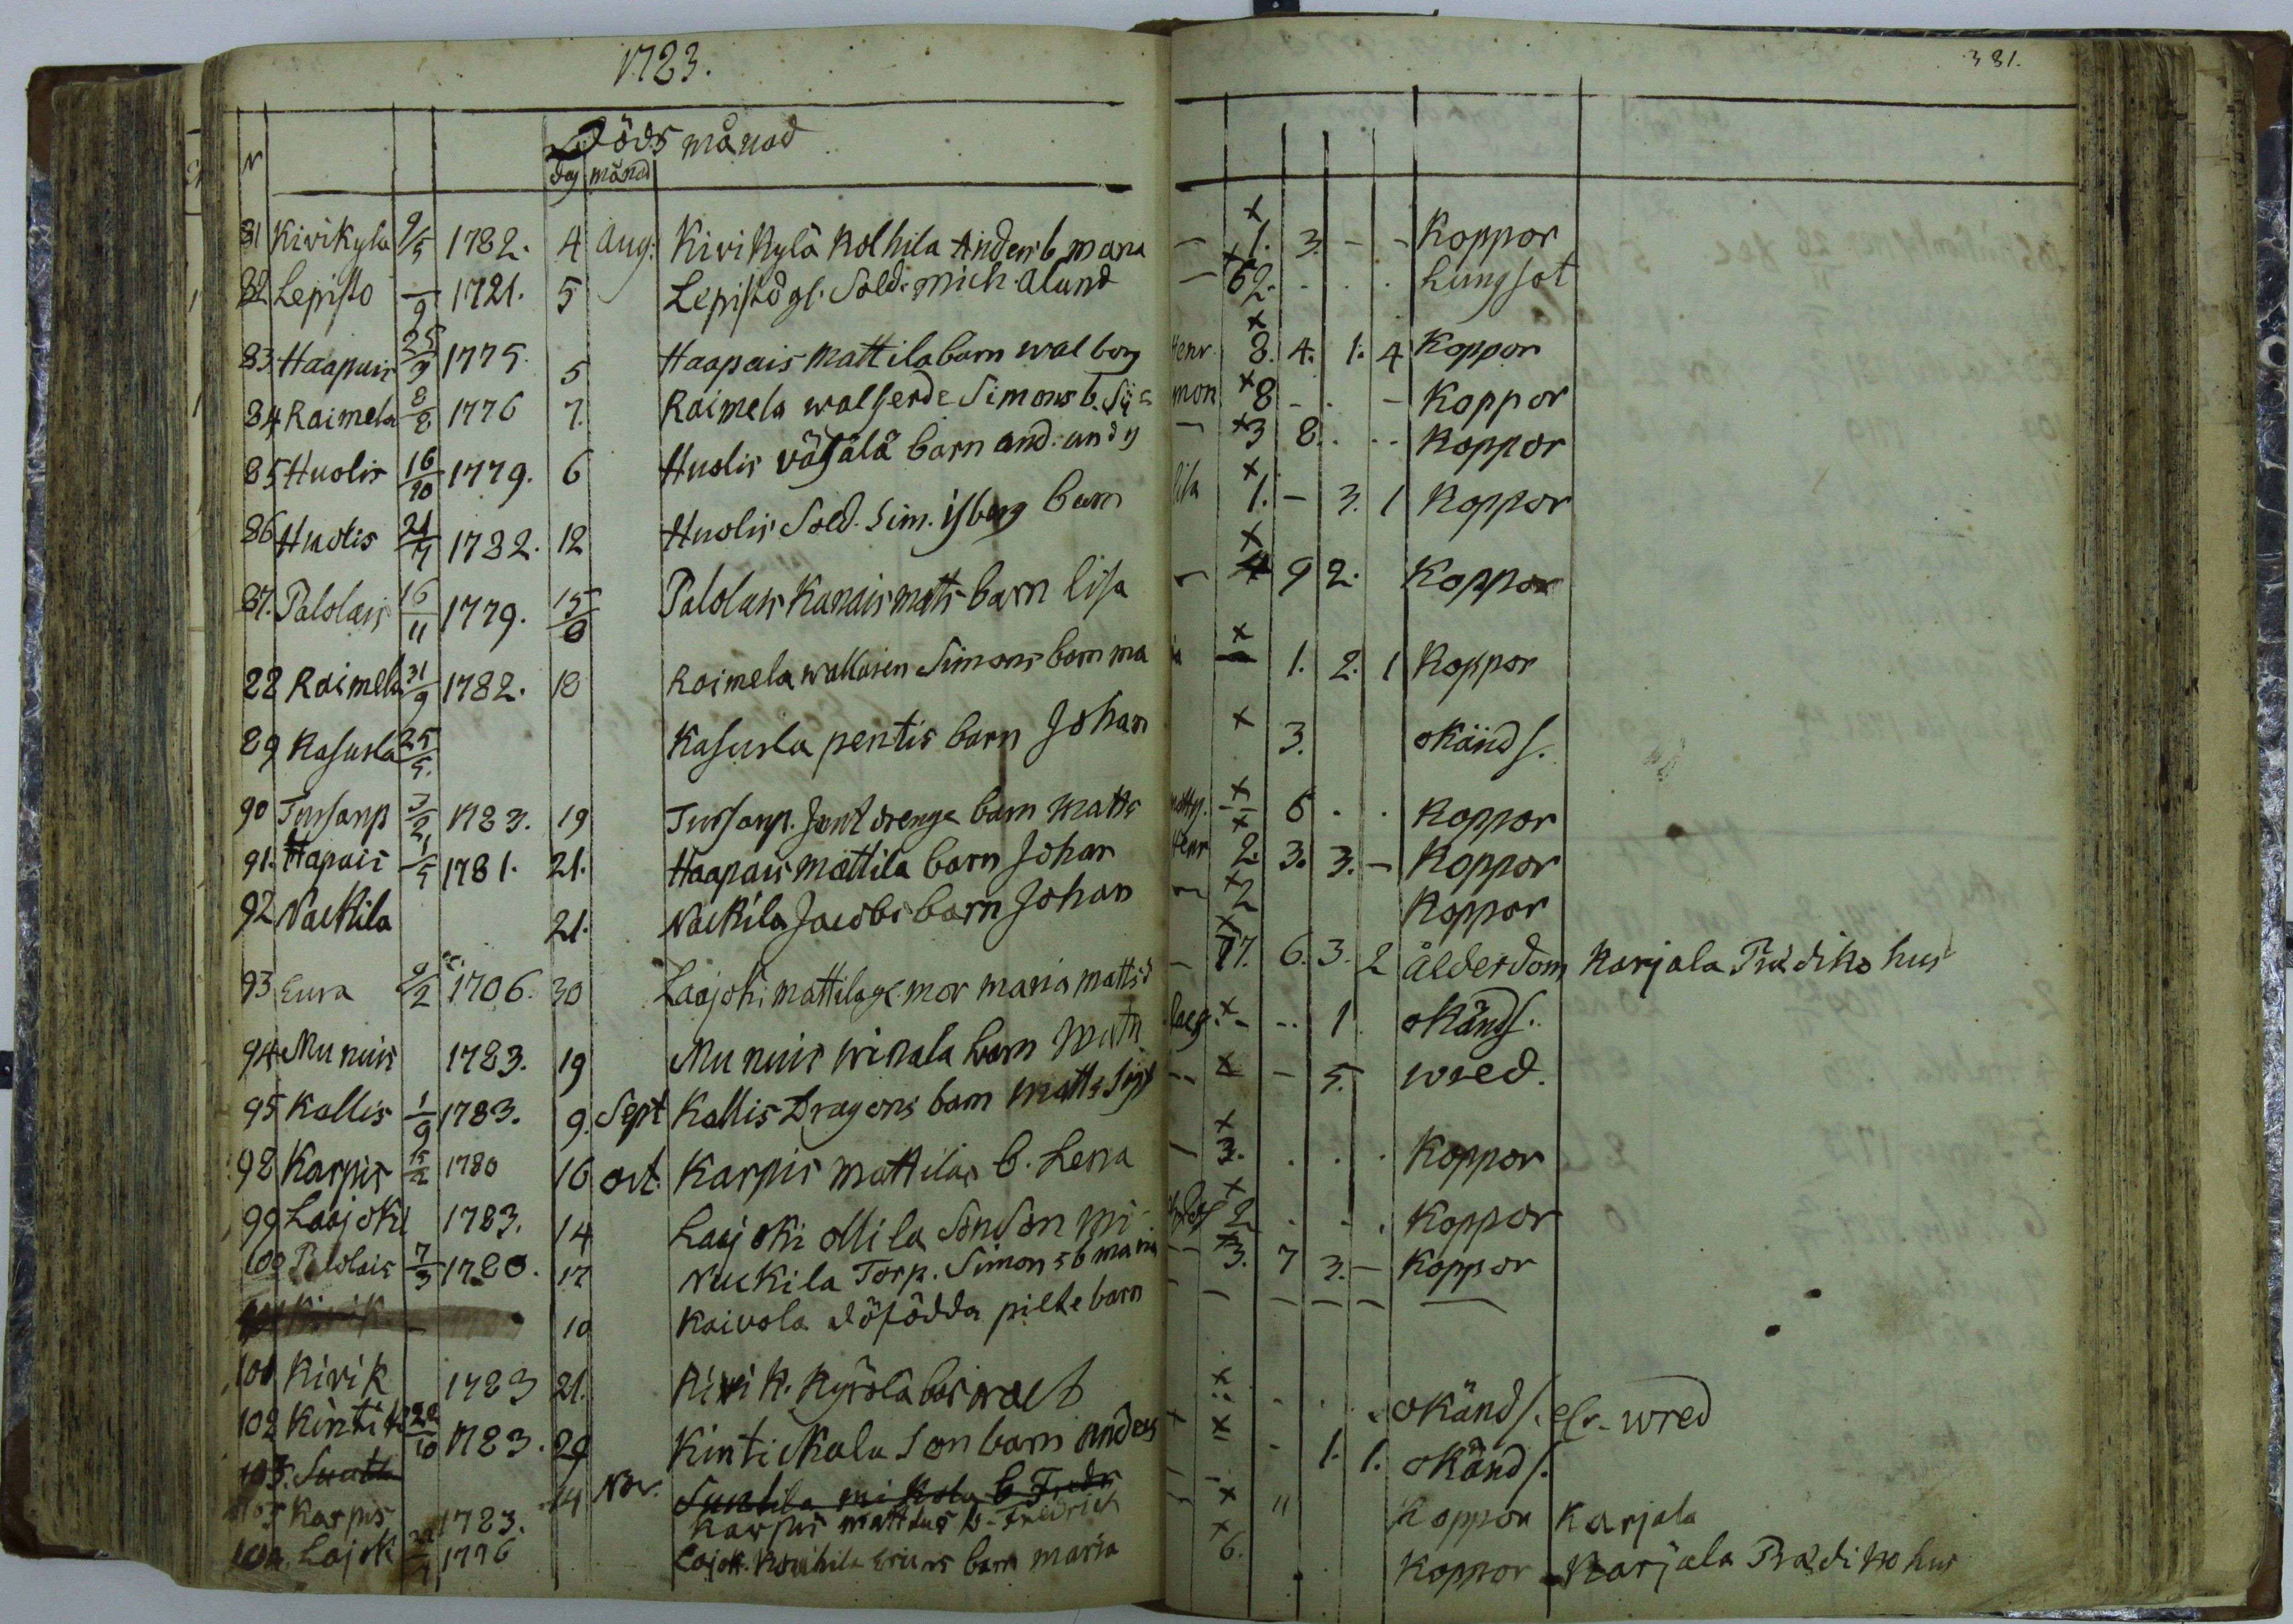 1783.
381.
N Döds månad
dag månad
81 Kivikyla 9/5 1782. 4 Aug. Kivikylä Kolhila Anders b. maria - 1. 3. - - Koppor
82 Lepisto -/9 1721. 5 Lepistö gl. Sold. Mich. Alund - 62. . . . Lungsot
83 Haapais 25/3 1775. 5 Haapais Mattila barn walborg Henr. 8. 4. 1. 4 Koppor
84 Raimela 8/8 1776 7. Raimela Simons b. mon 8 - . - Koppor
85 Huolis 16/10 1779. 6 Huolis väjälä barn and. - 3 8. . - - Koppor
86 Huolis 1782. 12 Huolis Sold. Sim. isberg barn lisa 1. - 3. 1 Koppor
87. Palolais 16/11 1779. 15/8 Palolais Kanais Matts barn lisa - 4 9 2. Koppor
88 Raimela 31/9 1782. 18 Raimela wallasen Simons barn ma ia - 1. 2. 1 Koppor
89 Kasurla 25/5. Kasurla pentis barn Johan 3. okänd s.
90 Tursanp 1783. 19 Tursanp. drenge barn Matts - 6 . . Koppor
91. Hapais 1/5 1781. 21. Haapais Mattila barn Johan Henr 2. 3. 3. - Koppor
92 Nackila 21. Nackila Jacobs barn Johan - 2 Koppor
93 Eura 9/2 1706. 30 Laajoki mattila ge. mor maria matts d - 77. 6. 3. 2 Ålderdom Karjala Prädiko hus
94 Munnis 1783. 19 Munnis barn - - 1. okänd s.
95 Kallis 1/9 1783. 9. Sept Kallis Dragons barn Matts - - - 5. wred.
98 Karpis 15/2 1780 16 oct. Karpis Mattilas b. Lena - 3. . . . Koppor
99 Laajoki 1783. 14 Laajoki ollila Sonson 2 . - . Koppor
100 Palolais 7/3 1780. 17 Nuckila Torp. Simons b maria - 3. 7 3. - Koppor
10 Kaivola döfödda pilte barn - - - - - -
101 Kivik 1783 21. Kivi K. Kyrölä - . . . okänd s. wred
102 Kinti 28/10 1783. 29 Kintickala Son barn Anders - - 1. 1. okänd s.
103. Suutila 14 Nov. Suutila mikola b Fredr
105 Karpis 1783. Karpis Mattlas b. Fredrich " Koppor Karjala
104. Lajok 1776 Lajok. Kouhila Erics barn maria 6. Koppor Karjala Prädiko hus